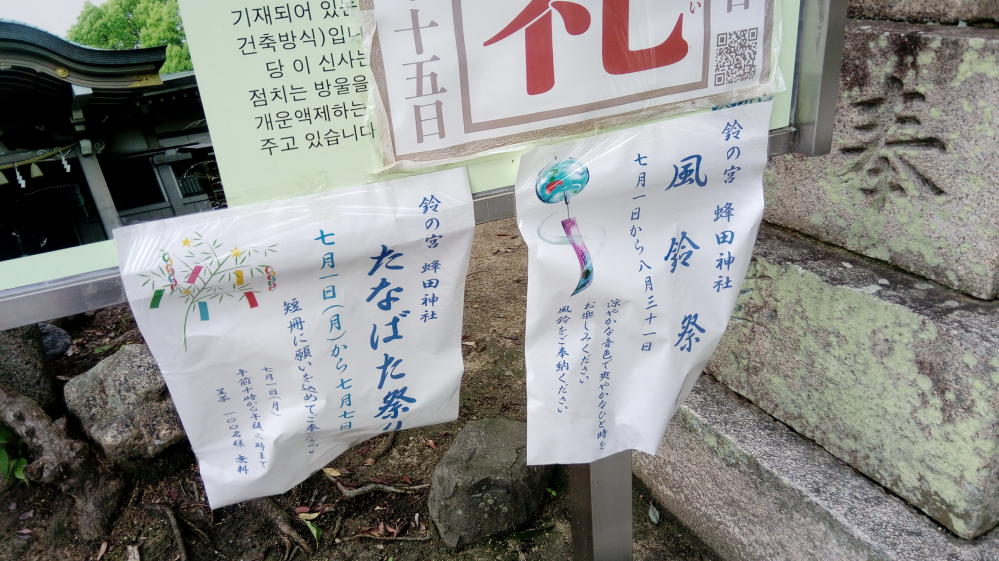 기재되어 있는
건축방식)입니
당 이 신사는
점치는 방울을
개운액제하는
주고 있습니다
十五日
礼
い
日
鈴の宮 蜂田神社
風鈴祭
七月一日から八月三十一日
涼やかな音色で爽やかなひと時を
お楽しみください
風鈴をご奉納ください
鈴の宮 蜂田神社
たなばた祭り
七月一日(月)から七月七日
短冊に願いを込めてご奉
七月一日(月)
午前十時から午後 時まで
一〇〇名様 無料
奉